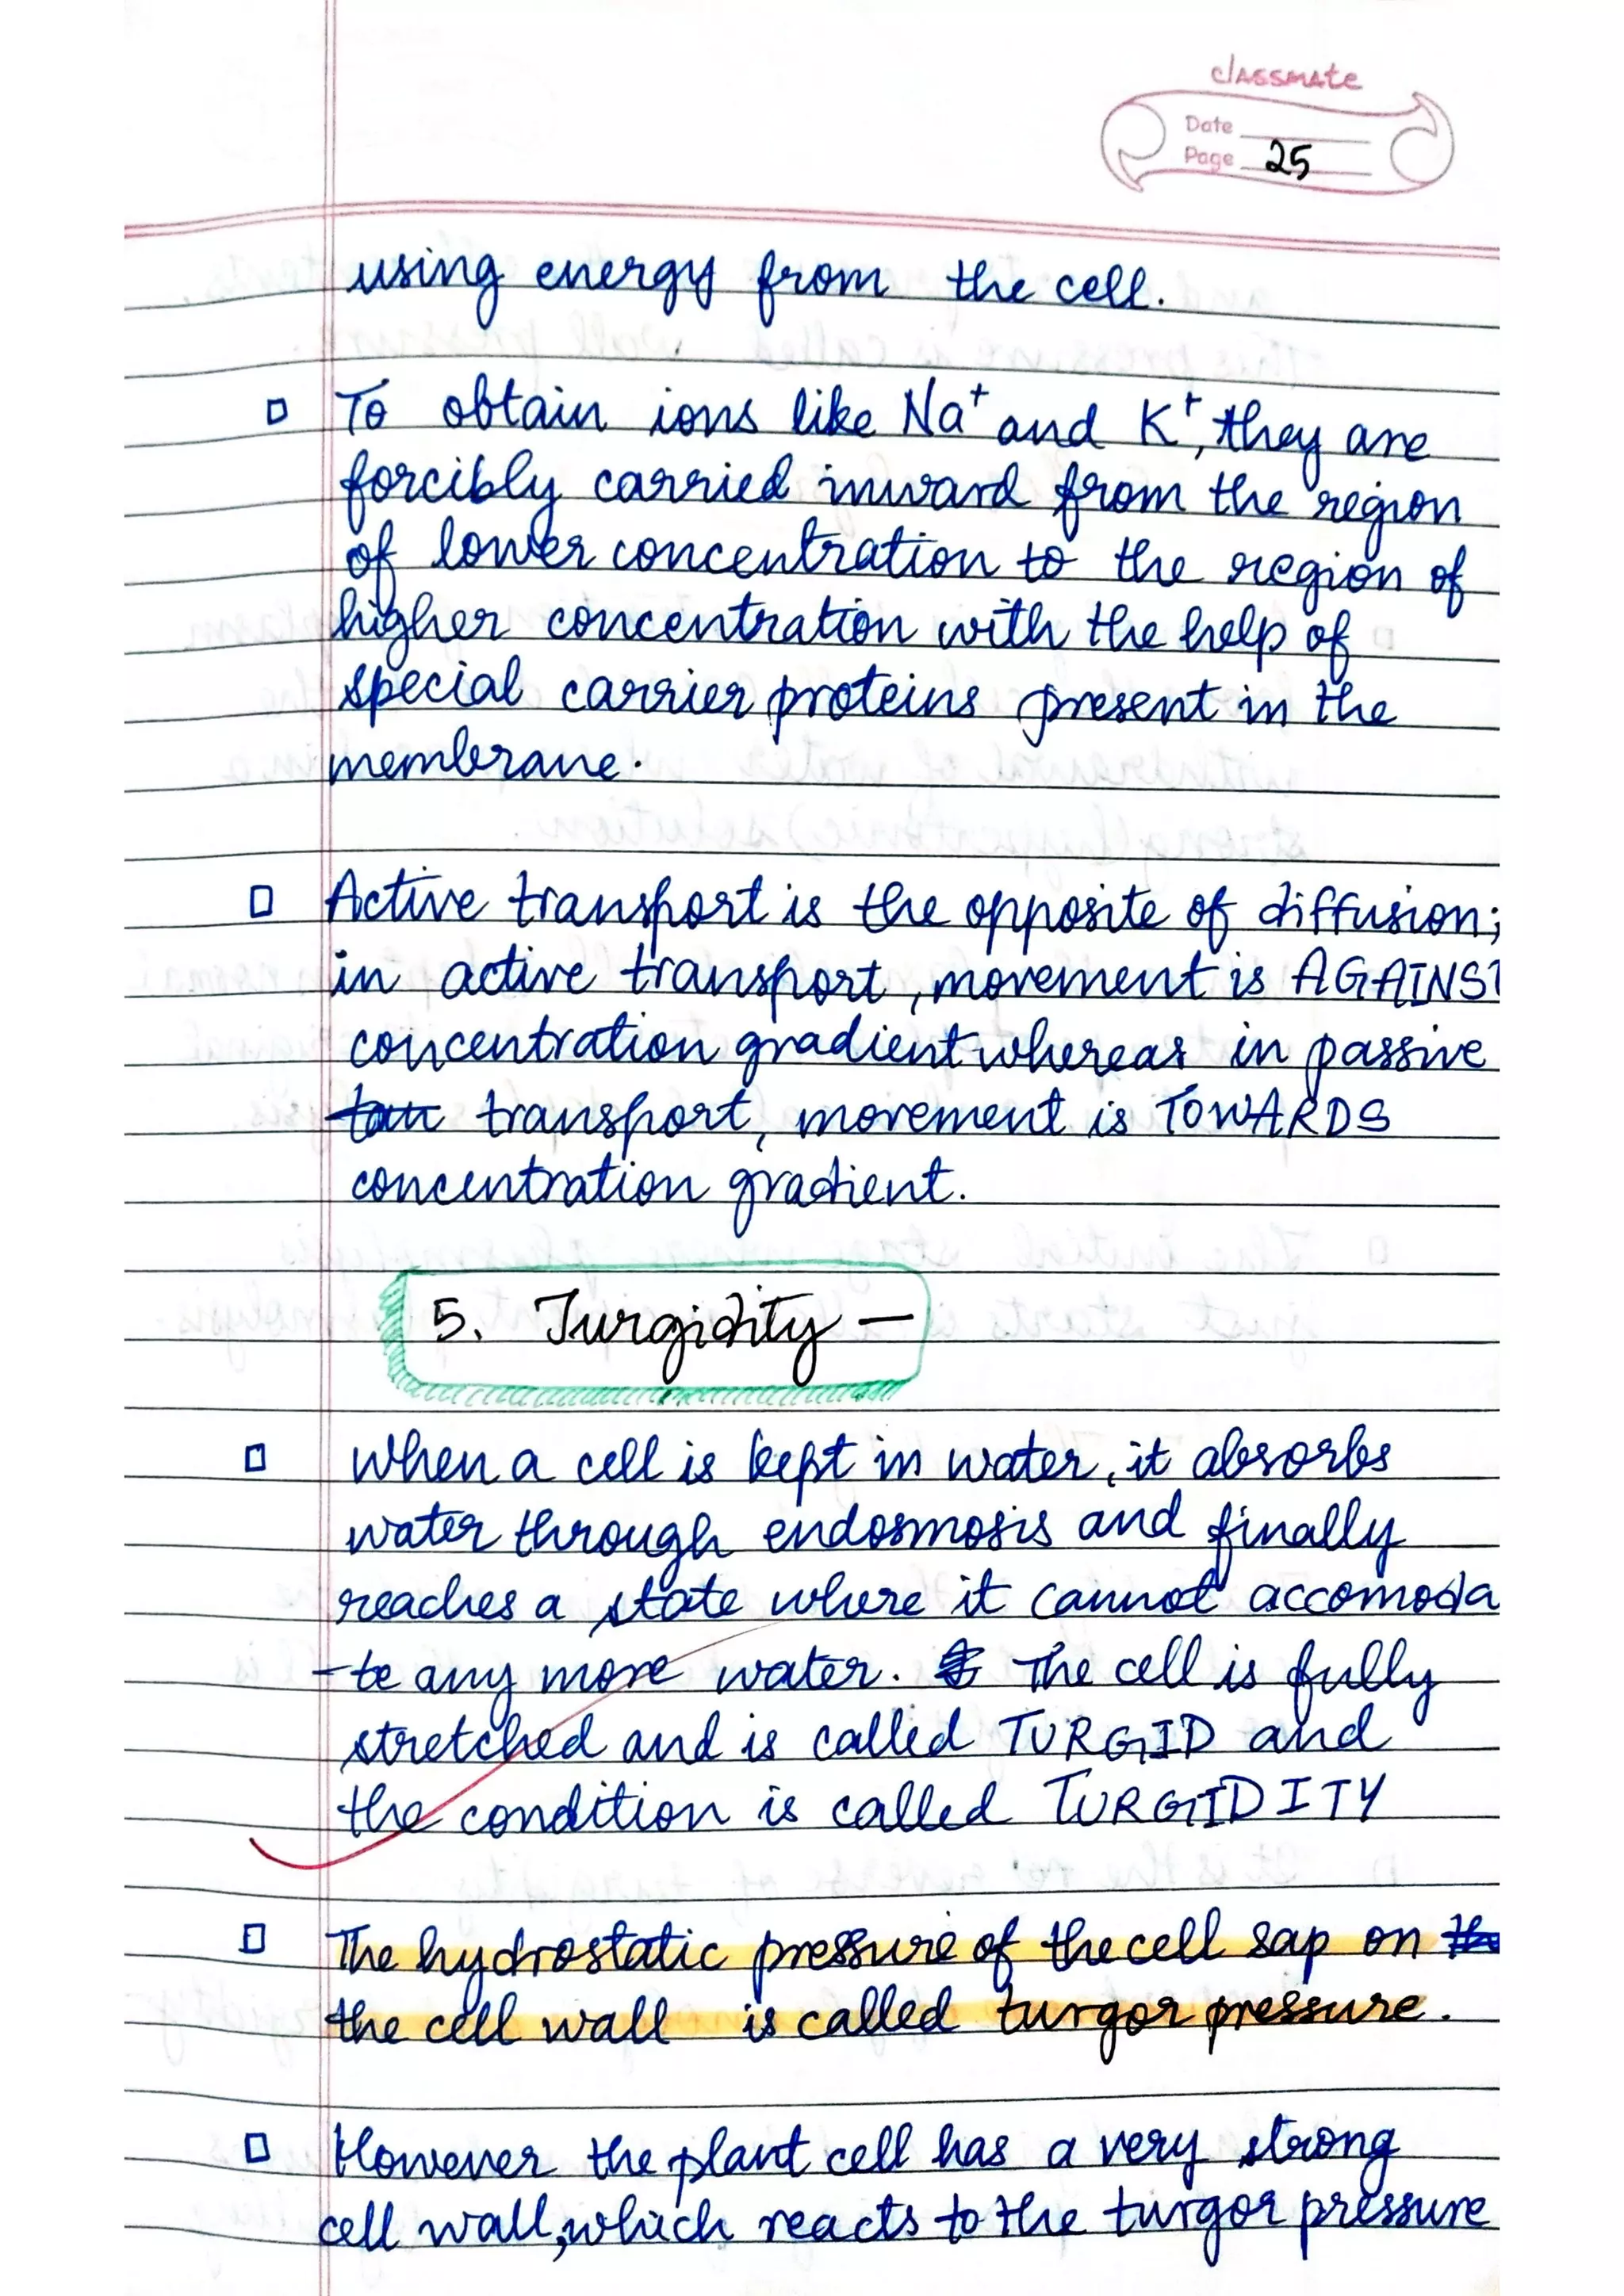 classmate
Date
Page 25
using energy from the cell.
To obtain ions like Na⁺ and K⁺, they are
forcibly carried inward from the region
of lower concentration to the region of
higher concentration with the help of
special carrier proteins present in the
membrane.
Active transport is the opposite of diffusion;
in active transport, movement is AGAINST
concentration gradient whereas in passive
transport, movement is TOWARDS
concentration gradient.
5. Turgidity –
When a cell is kept in water, it absorbs
water through endosmosis and finally
reaches a state where it cannot accomoda
-te any more water. The cell is fully
stretched and is called TURGID and
the condition is called TURGIDITY
The hydrostatic pressure of the cell sap on
the cell wall is called turgor pressure.
However the plant cell has a very strong
cell wall, which reacts to the turgor pressure